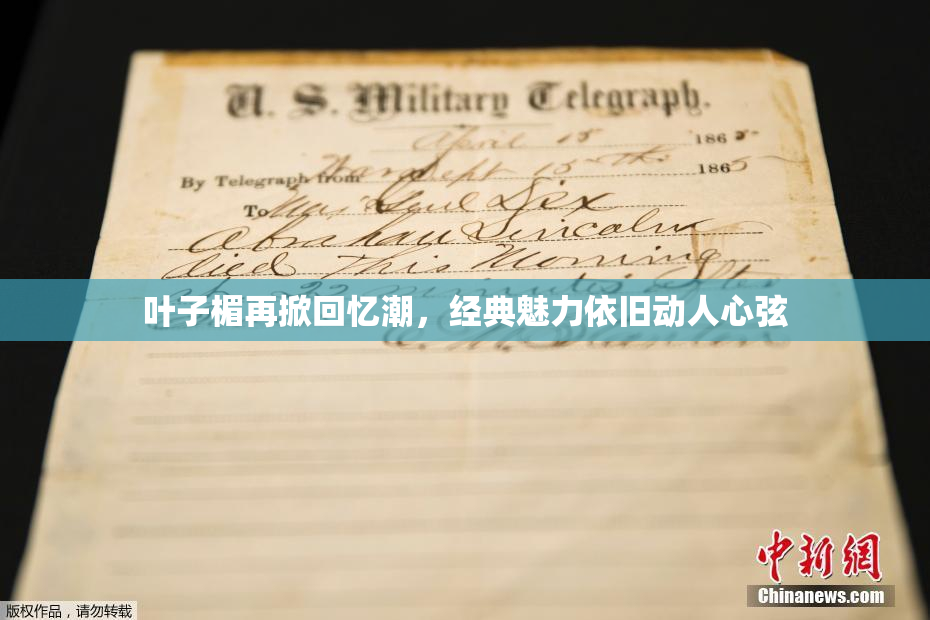 U. S. Military Telegraph.
April 15 1865
By Telegraph from War Dept 15th 1865
To Maj Genl Dix
Abraham Lincoln
died This Morning
22 minutes after
叶子楣再掀回忆潮，经典魅力依旧动人心弦
E. M. Stanton
中新网
Chinanews.com
版权作品，请勿转载